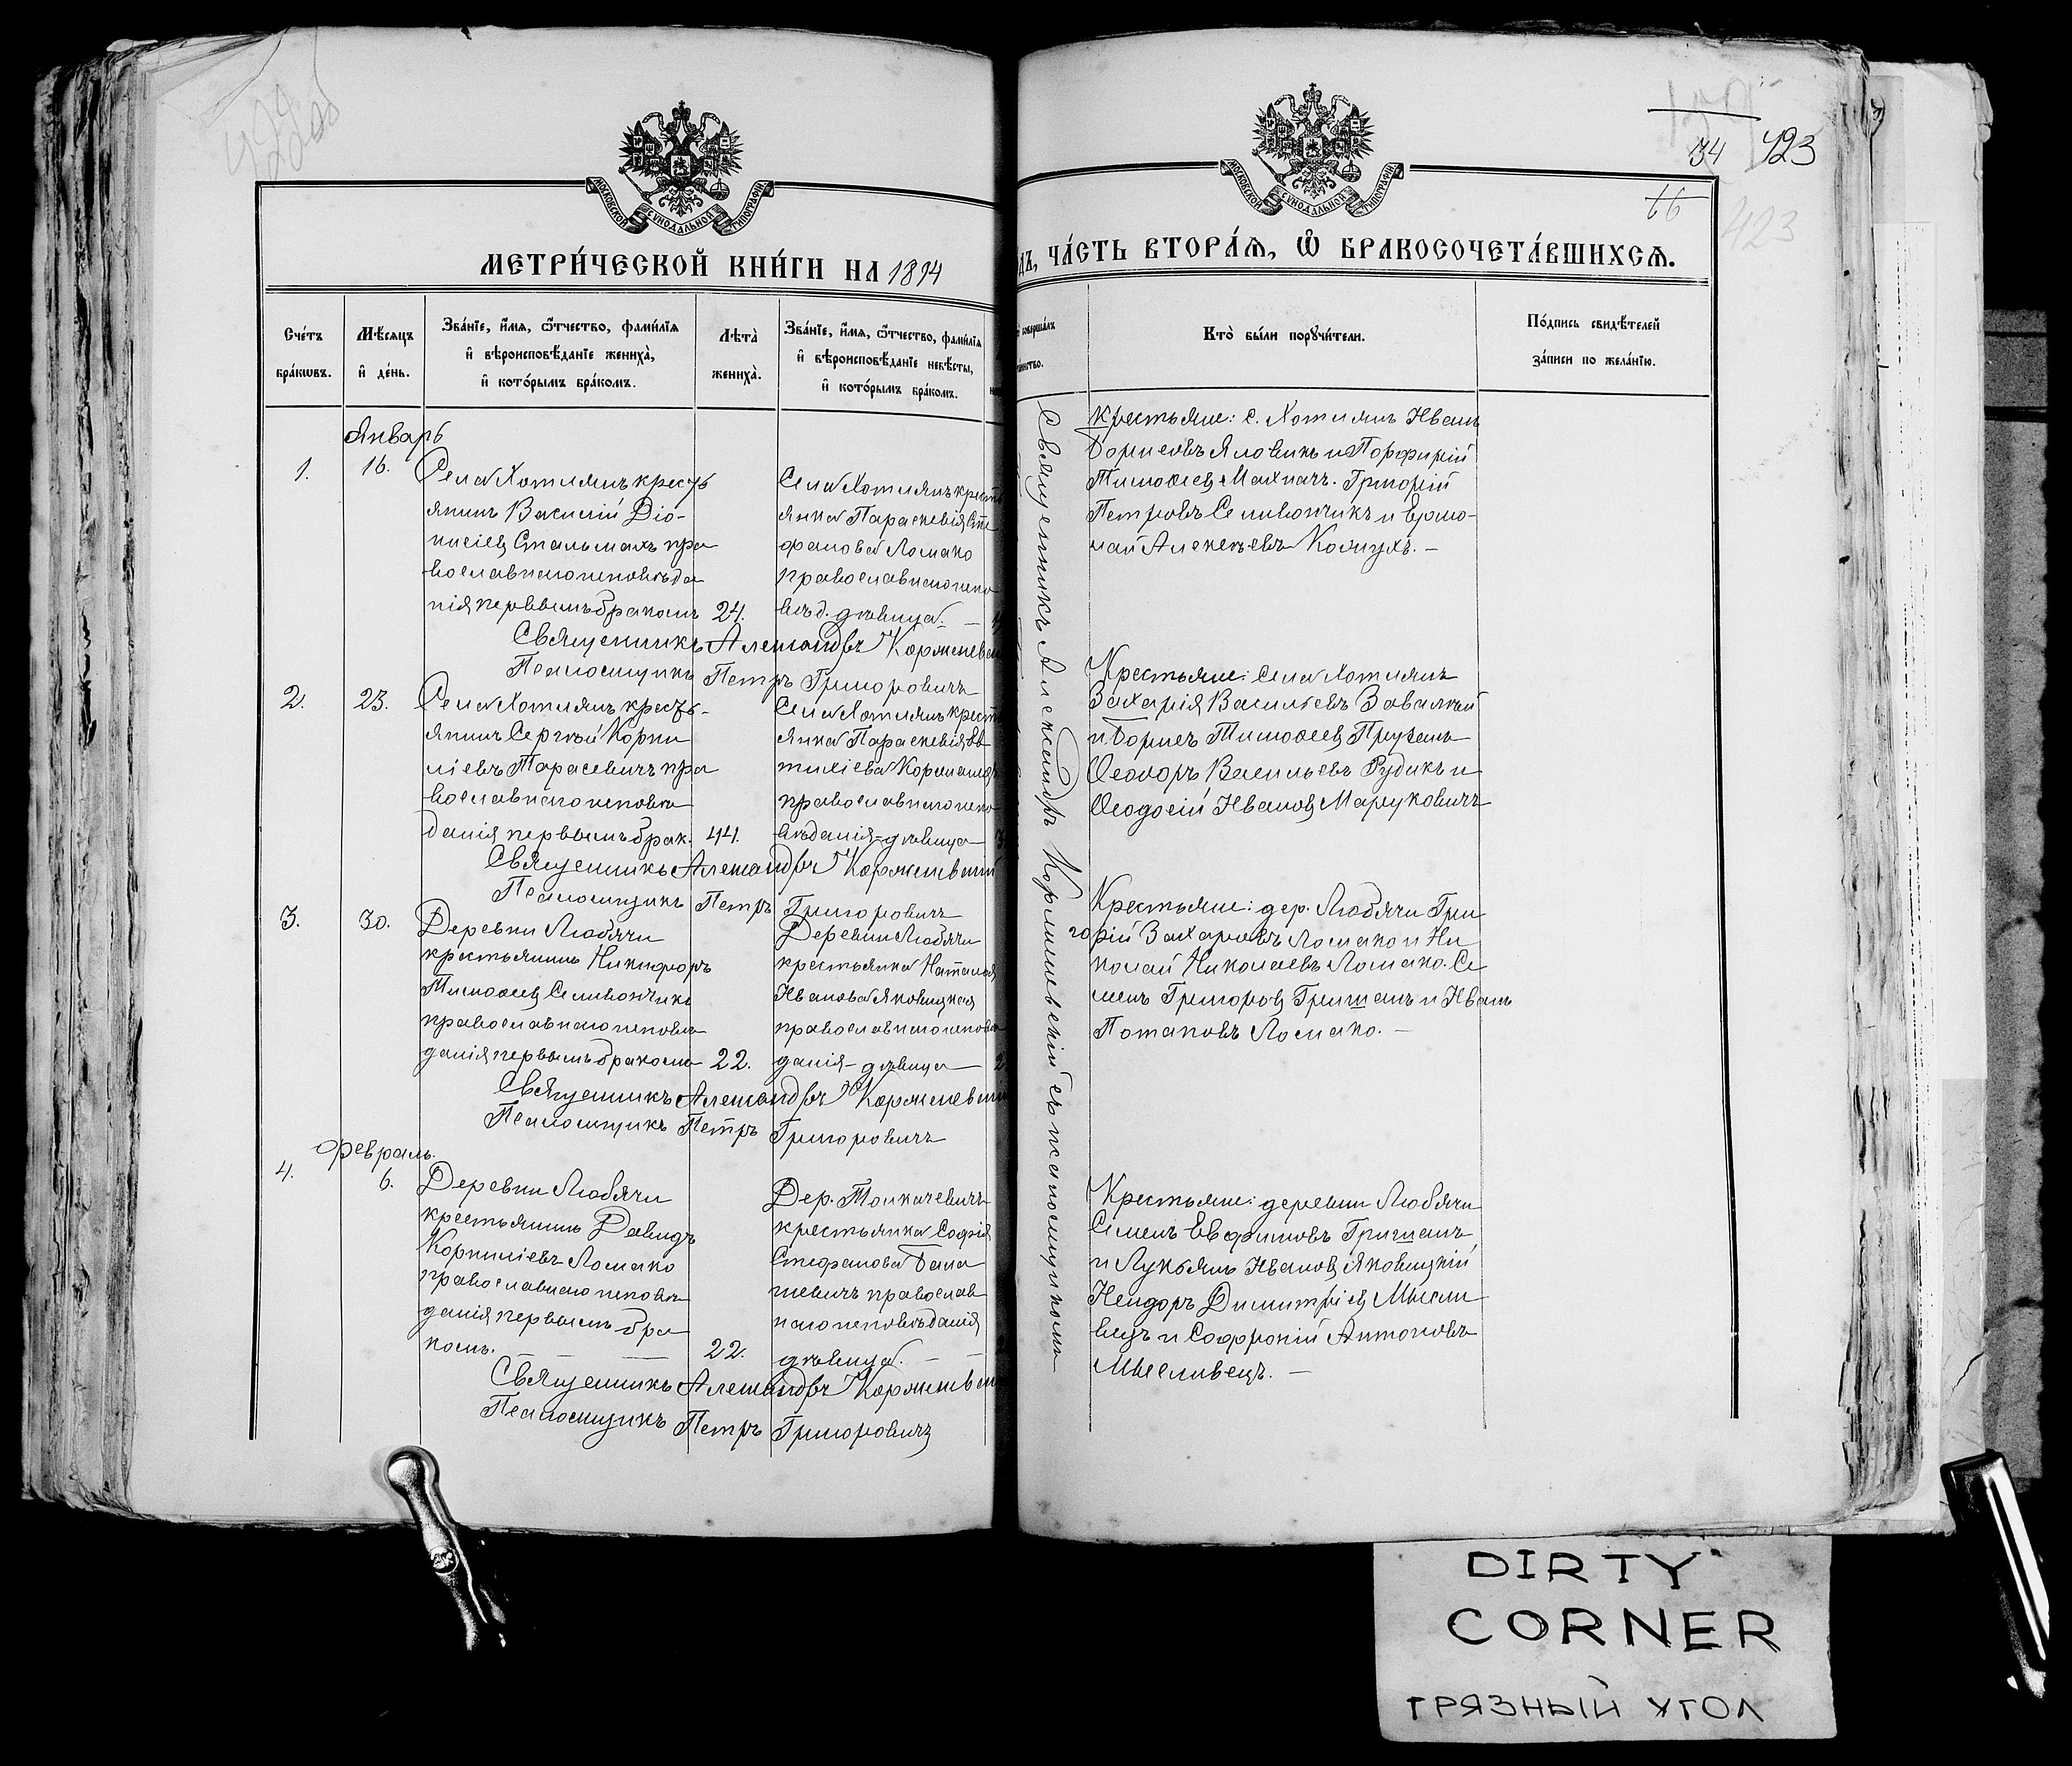 МОСКОВСКОЙ СУНОДАЛЬНОЙ ТИПОГРАФІИ
МЕТРИ́ЧЕСКОЙ КНИ́ГИ НА 1894
Сче́тъ бра́кѡвъ.
Мѣ́сяцъ и҆ де́нь.
Зва́нїе, и҆́мя, ѻ҆́тчество, фами́лїя и҆ вѣроисповѣ́данїе жениха̀, и҆ кото́рымъ бра́комъ.
Лѣта̀ жениха̀.
Зва́нїе, и҆́мя, ѻ҆́тчество, фами́лїя и҆ вѣроисповѣ́данїе невѣ́сты, и҆ кото́рымъ бра́комъ.
Январь
1. 16.
Села Хотлянъ кресть
янинъ Василій Діо-
нисіевъ Стальмахъ пра
вославнаго исповѣда
нія первымъ бракомъ 24.
Села Хотлянъ кресть
янка Параскевія Сте
фанова Ломако
православнаго испо
вѣд. дѣвица. —
Священникъ Александръ
Псаломщикъ Петръ Григоровичъ
2. 23.
Села Хотлянъ кресть-
янинъ Сергѣй Корни
ліевъ Тарасевичъ пра
вославнаго исповѣ
данія первымъ брак. 44.
Села Хотлянъ кресть
янка Параскевія Ев
православнаго испо
вѣданія-дѣвица
Священникъ Александръ
Псаломщикъ Петръ Григоровичъ
3. 30.
Деревни Любячи
крестьянинъ Никифоръ
Тимоѳеевъ Селивончикъ
православнаго исповѣ
данія первымъ бракомъ 22.
Деревни Любячи
крестьянка Наталія
Иванова Яковицкая
православнаго исповѣ
данія-дѣвица
Священникъ Александръ
Псаломщикъ Петръ Григоровичъ
Февраль.
4. 6.
Деревни Любячи
крестьянинъ Давидъ
Корниліевъ Ломако
православнаго исповѣ
данія первымъ бра
комъ. — — 22.
Дер. Толкачевичъ
крестьянка Софія
Стефанова Бана
шевичъ православ
наго исповѣданія
дѣвица. — —
Священникъ Александръ
Псаломщикъ Петръ Григоровичъ
34 423
66
423
МОСКОВСКОЙ СУНОДАЛЬНОЙ ТИПОГРАФІИ
ДЪ, ЧА́СТЬ ВТОРА́Ѧ, Ѡ҆ БРАКОСОЧЕТА́ВШИХСѦ.
соверша́лъ
та́инство.
Кто̀ бы́ли порꙋчи́тели.
По́дпись свидѣ́телей за́писи по жела́нїю.
Священникъ Александръ съ псаломщикомъ
Крестьяне: с. Хотлянъ Иванъ
Борисовъ Яловикъ и Порфирій
Тимоѳеевъ Махначъ. Григорій
Петровъ Селивончикъ и Ермо-
лай Алексѣевъ Колцухъ. —
Крестьяне: села Хотлянъ
Захарія Васильевъ Завалкъй
и Борисъ Тимоѳеевъ Прузанъ
Ѳеодоръ Васильевъ Рудикъ и
Ѳеодосій Ивановъ Маруковичъ
Крестьяне: дер. Любячи Гри
горій Захаровъ Ломако и Ни
колай Николаевъ Ломако. Се
менъ Григоровъ Гришанъ и Иванъ
Потаповъ Ломако. —
Крестьяне: деревни Любячи
Семенъ Евфимовъ Гришанъ
и Лукьянъ Ивановъ Яковицкій
Исидоръ Димитріевъ Мысли
вецъ и Софроній Антоновъ
Мысливецъ. —
DIRTY
CORNER
ГРЯЗНЫЙ УГОЛ